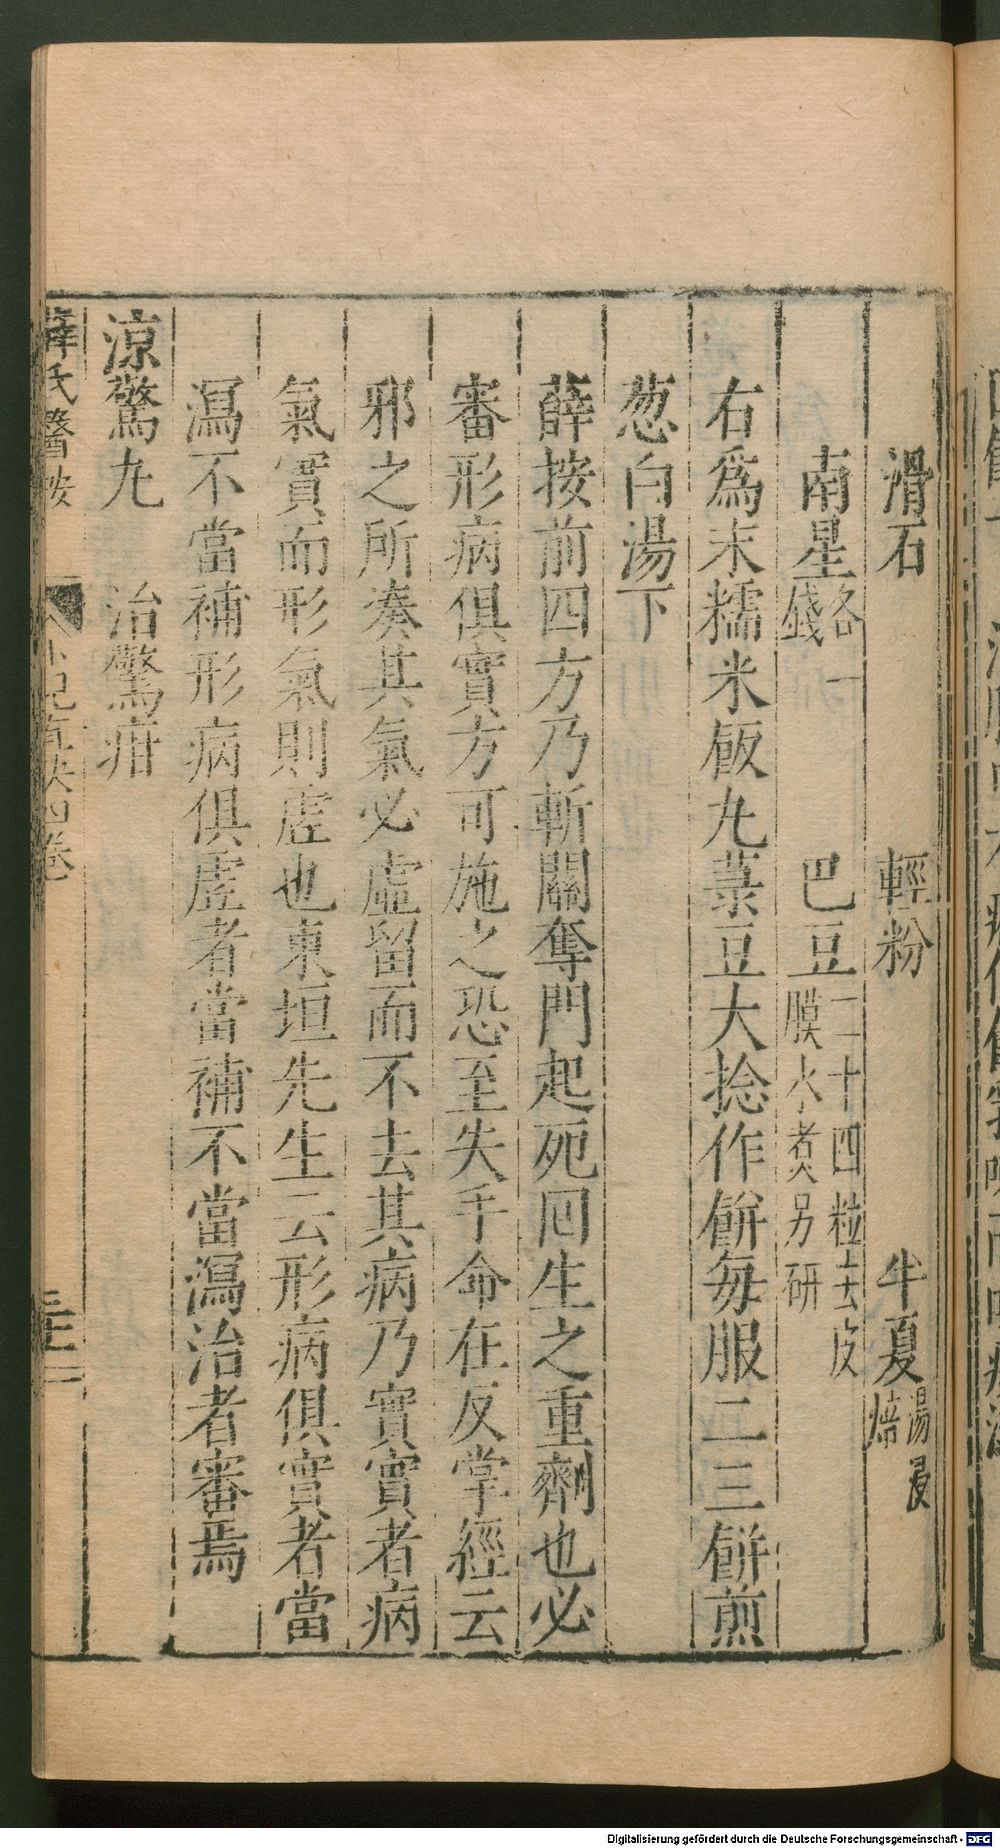 滑石 輕粉 半夏湯浸焙
南星各一錢 巴豆二十四粒去皮膜水煮另研
右爲末糯米飯丸菉豆大捻作餅每服二三餅煎
葱白湯下
薛按前四方乃斬關奪門起死囘生之重劑也必
審形病俱實方可施之恐至失手命在反掌經云
邪之所凑其氣必虛留而不去其病乃實實者病
氣實而形氣則虛也東垣先生云形病俱實者當
瀉不當補形病俱虛者當補不當瀉治者審焉
涼驚丸 治驚疳
薛氏醫按 小兒直訣四卷
Digitalisierung gefördert durch die Deutsche Forschungsgemeinschaft - DFG